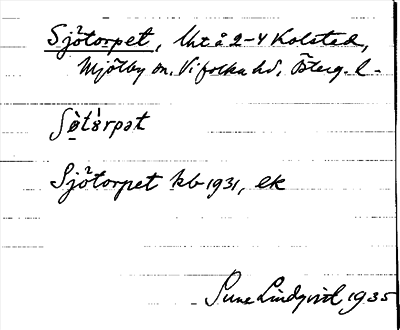 Sjötorpet, Utå 2-4 Kolstad,
Mjölby sn. Vifolka hd, Österg. l-
Sjötorpet kb 1931, ek
Sune Lindqvist 1935